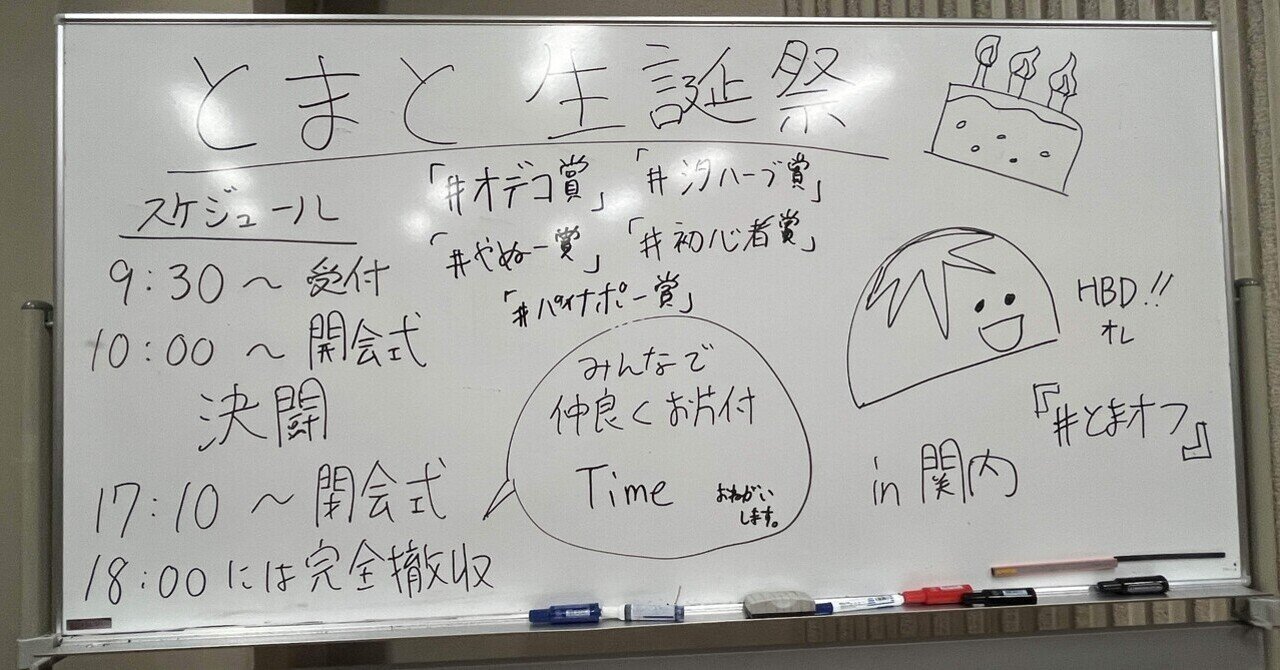 とまと生誕祭
スケジュール
9:30～受付
10:00～開会式
決闘
17:10～閉会式
18:00には完全撤収
「#オデコ賞」「#汐ハーブ賞」
「#やぬー賞」「#初心者賞」
「#パイナポー賞」
みんなで
仲良くお片付
Time
おねがい
します。
HBD!!
オレ
『#とまオフ』
in 関内